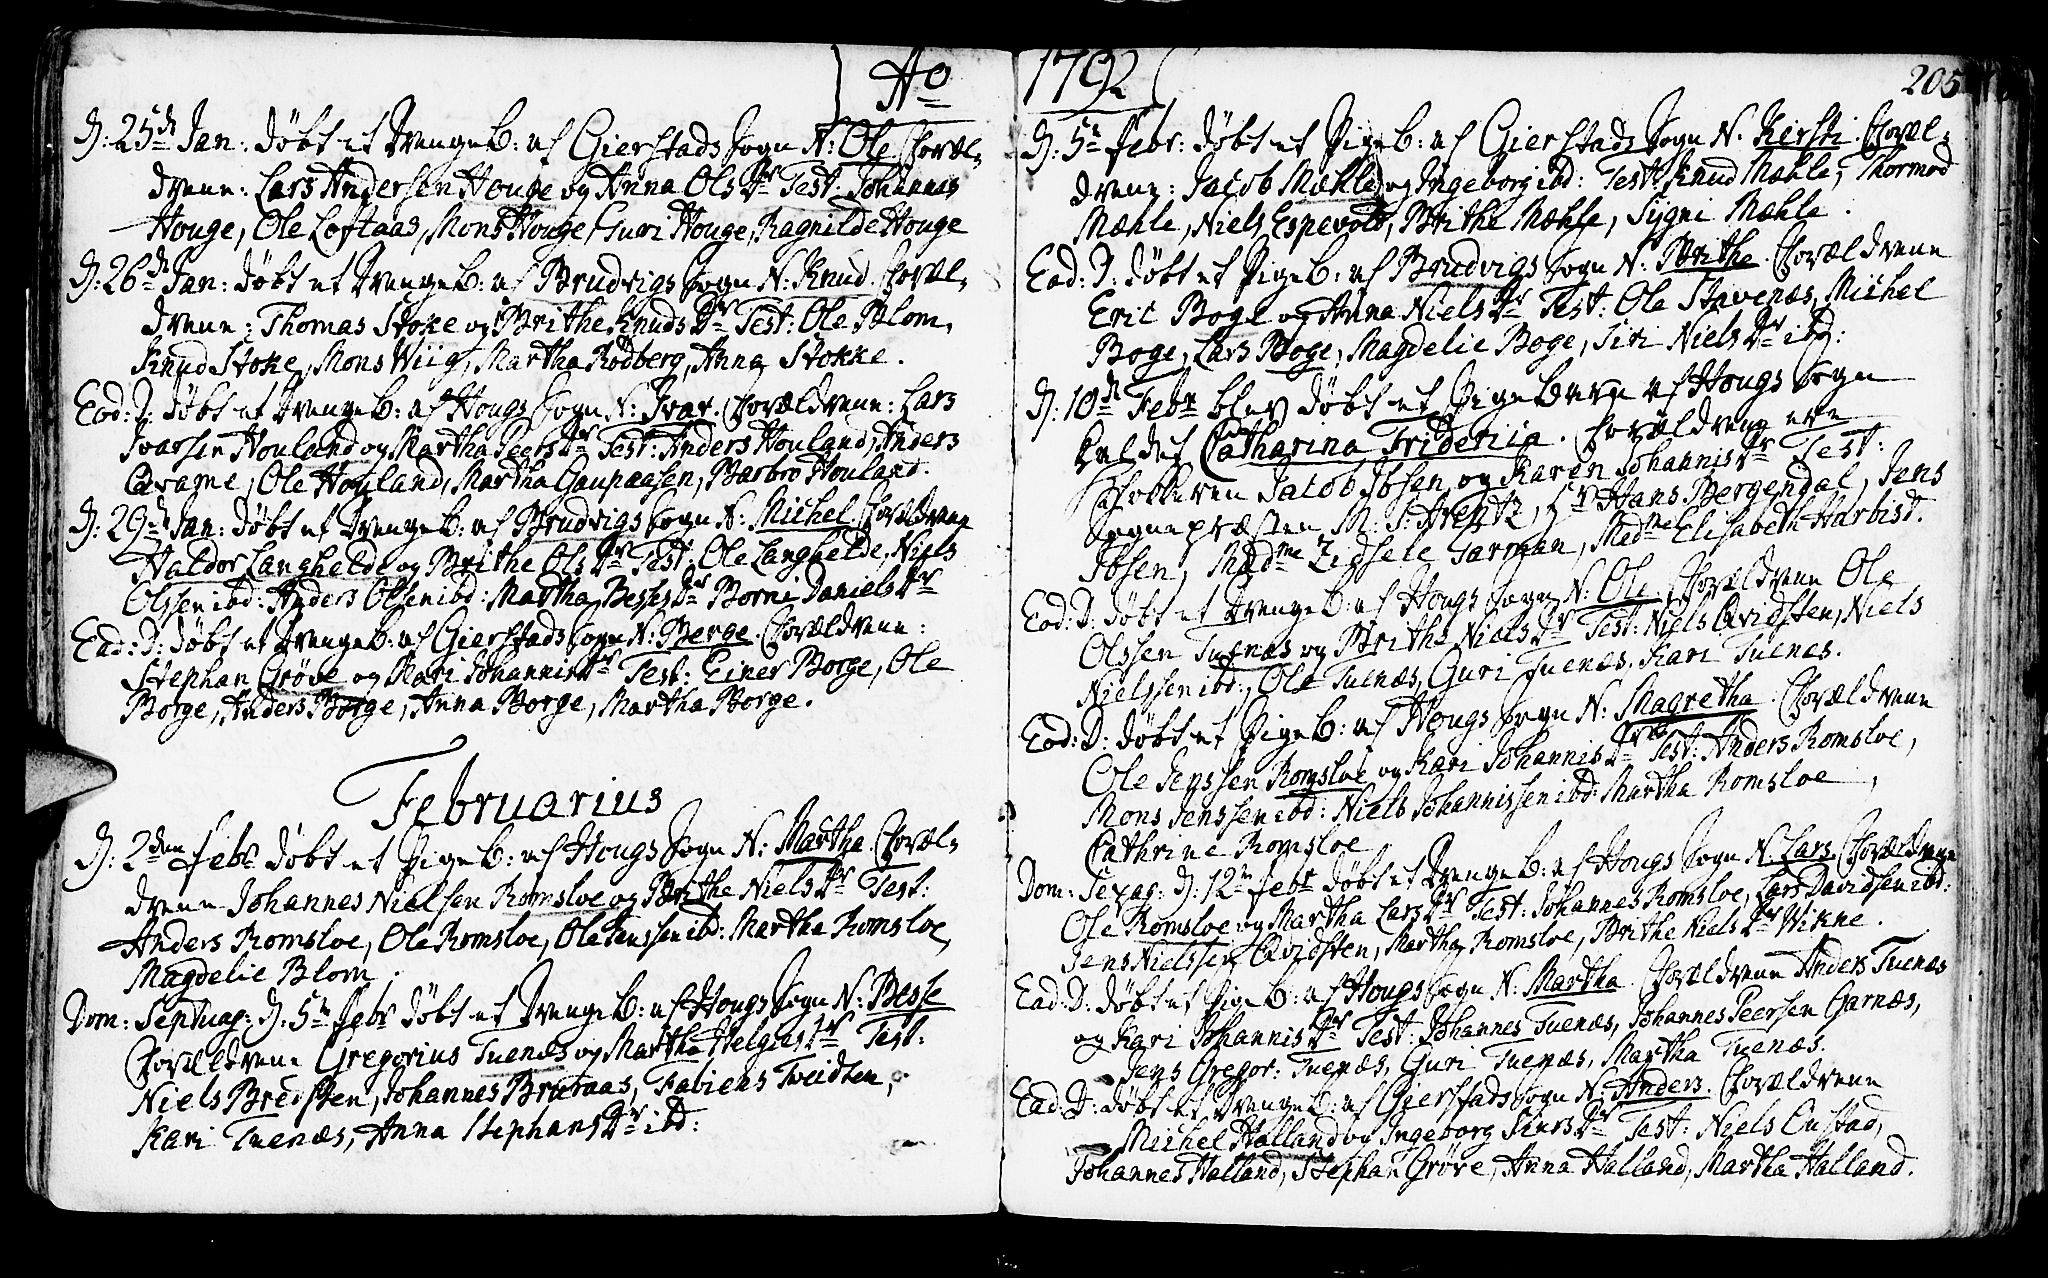 Ao
D: 25de Jan: døbt et DrengeB: af Gierstads Sogn N: Ole Foræl-
drene: Lars Andersen Houge og Anna Ols Dr Test: Johannes
Houge, Ole Loftaas, Mons Houge, Guri Houge, Ragnilde Houge
D: 26de Jan: døbt et DrengeB: af Brudvigs Sogn N: Knud. Foræl-
drene: Thomas Stoke og Brithe Knuds Dr Test: Ole Blom,
Knud Stoke, Mons Wiig, Martha Rødberg, Anna Stokke.
Eod: D: døbt et DrengeB: af Hougs Sogn N: Ivar. Forældrene: Lars
Ivarsen Houland og Martha Peers Dr Test: Anders Houland, Anders
Ole Houland, Martha Gaupaasen, Barbro Houland.
D: 29de Jan: døbt et DrengeB: af Brudvigs Sogn N: Michel Forældrene
Haldor Langhelde og Brithe Ols Dr Test: Ole Langhelde, Niels
Olssen ibd: Anders Olssen ibd: Martha Besses Dr Borni Daniels Dr
Ead: D: døbt et DrengeB: af Gierstads Sogn N: Berge. Forældrene:
Stephan Grøve og Mari Johannis Dr Test: Einer Borge, Ole
Borge, Anders Borge, Anna Borge, Martha Borge.
Februarius
D: 2den Febr døbt et PigeB: af Hougs Sogn N: Martha. Foræl-
drene Johannes Nielsen Romsloe og Brithe Niels Dr Test:
Anders Romsloe, Ole Romsloe, Ole Jenssen ibd: Martha Romsloe,
Magdelie Blom.
Dom: Septuag: D: 5te Febr døbt et DrengeB: af Hougs Sogn N: Besse
Forældrene Gregorius Tuenæs og Martha Helgies Dr Test:
Niels Bredsten, Johannes Brutaas, Fabiens Tveidten,
Kari Tuenæs, Anna Stephans Dr ibd:
1792
205
D: 5te Febr: døbt et PigeB: af Gierstads Sogn N. Kirsti. Foræl-
drene: Jacob Mæhle og Ingeborg ibd: Test: Knud Mæhle, Thormod
Mæhle, Niels Espevold, Brithe Mæhle, Sygni Mæhle.
Ead: D: døbt et PigeB: af Brudvigs Sogn N: Brithe. Forældrene
Eric Boge og Anna Niels Dr Test: Ole Stavenæs, Michel
Boge, Lars Boge, Magdelie Boge, Siri Niels Dr ibd:
D: 10de Febr blev døbt et Pigebarn af Hougs Sogn
kaldet Catharina Fridericia. Forældrene ere
Jacob Ibsen og Karen Johannis Dr Test:
Sognepræsten M. S: Arentz, Hr Hans Bergendal, Jens
Ibsen, Madme Zidsele Garman, Madme Elisabeth Harbist.
Eod: D: døbt et DrengeB: af Hougs Sogn N: Ole. Forældrene Ole
Olssen Tuenæs og Brithe Niels Dr Test: Niels Qvidsten, Niels
Nielssen ibd:, Ole Tuenæs, Guri Tuenæs, Kari Tuenæs.
Eod: D: døbt et PigeB: af Hougs Sogn N: Magretha. Forældrene
Ole Jenssen Romsloe og Kari Johannis Dr Test: Anders Romsloe,
Mons Jenssen ibd: Niels Johannissen ibd: Martha Romsloe,
Cathrine Romsloe
Dom: Sexag: D: 12te Febr døbt et DrengeB: af Hougs Sogn N. Lars Forældrene
Ole Romsloe og Martha Lars Dr Test: Johannes Romsloe, Lars Davidsen ibd:
Jens Nielssen Qvidsten, Martha Romsloe, Brithe Niels Dr Wikne.
Ead: D: døbt et PigeB: af Hougs Sogn N: Martha. Forældrene Anders Tuenæs
og Kari Johannis Dr Test: Johannes Tuenæs, Johannes Peersen Garnæs,
Jens Gregor: Tuenæs, Guri Tuenæs, Martha Tuenæs.
Ead: D: døbt et DrengeB: af Gierstads Sogn N: Anders. Forældrene
Michel Halland og Ingeborg Siurs Dr Test: Niels Custad,
Johannes Halland, Stephan Grøve, Anna Halland, Martha Halland.